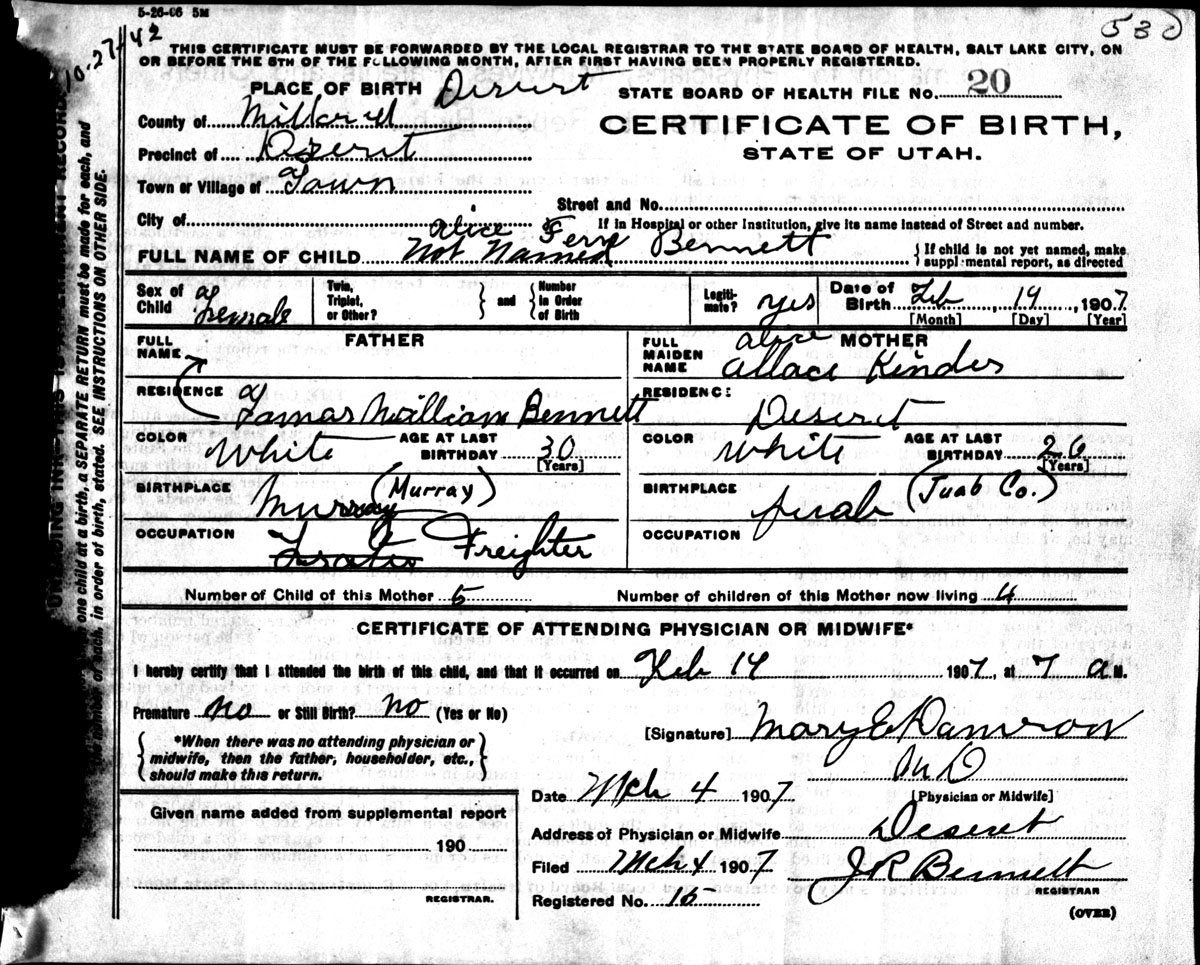 5-26-06 5M
530
10-27-42
THIS CERTIFICATE MUST BE FORWARDED BY THE LOCAL REGISTRAR TO THE STATE BOARD OF HEALTH, SALT LAKE CITY, ON
OR BEFORE THE 5TH OF THE FOLLOWING MONTH, AFTER FIRST HAVING BEEN PROPERLY REGISTERED.
PLACE OF BIRTH Desert STATE BOARD OF HEALTH FILE NO. 20
County of Millard
CERTIFICATE OF BIRTH,
Precinct of Deserit
STATE OF UTAH.
Town or Village of Town
Street and No.
City of
If in Hospital or other Institution, give its name instead of Street and number.
Alice Fern
FULL NAME OF CHILD Not Named Bennett
{ If child is not yet named, make
supplemental report, as directed
Sex of Child Female
Twin, Triplet, or Other?
and
Number in Order of Birth
Legiti-mate? yes
Date of Birth Feb 14, 1907
[Month] [Day] [Year]
FULL NAME
FATHER
FULL MAIDEN NAME
Alice MOTHER
Allace Kinder
RESIDENCE
Tamas William Bennett
RESIDENCE
Deseret
COLOR White AGE AT LAST BIRTHDAY 30
[Years]
COLOR White AGE AT LAST BIRTHDAY 26
[Years]
BIRTHPLACE Murray (Murray)
BIRTHPLACE Juab (Juab Co.)
OCCUPATION Freighter
OCCUPATION
Number of Child of this Mother 5 Number of children of this Mother now living 4
CERTIFICATE OF ATTENDING PHYSICIAN OR MIDWIFE*
I hereby certify that I attended the birth of this child, and that it occurred on Feb 14 1907, at 7 a M.
Premature no or Still Birth? no (Yes or No)
[Signature] Mary E Damron
MD
*When there was no attending physician or
midwife, then the father, householder, etc.,
should make this return.
Date Mch 4 1907
[Physician or Midwife]
Given name added from supplemental report
190
REGISTRAR.
Address of Physician or Midwife Deseret
Filed Mch 4 1907 J R Bennett
REGISTRAR
Registered No. 15
(OVER)
one child at a birth, a SEPARATE RETURN must be made for each, and
number of each, in order of birth, stated. SEE INSTRUCTIONS ON OTHER SIDE.